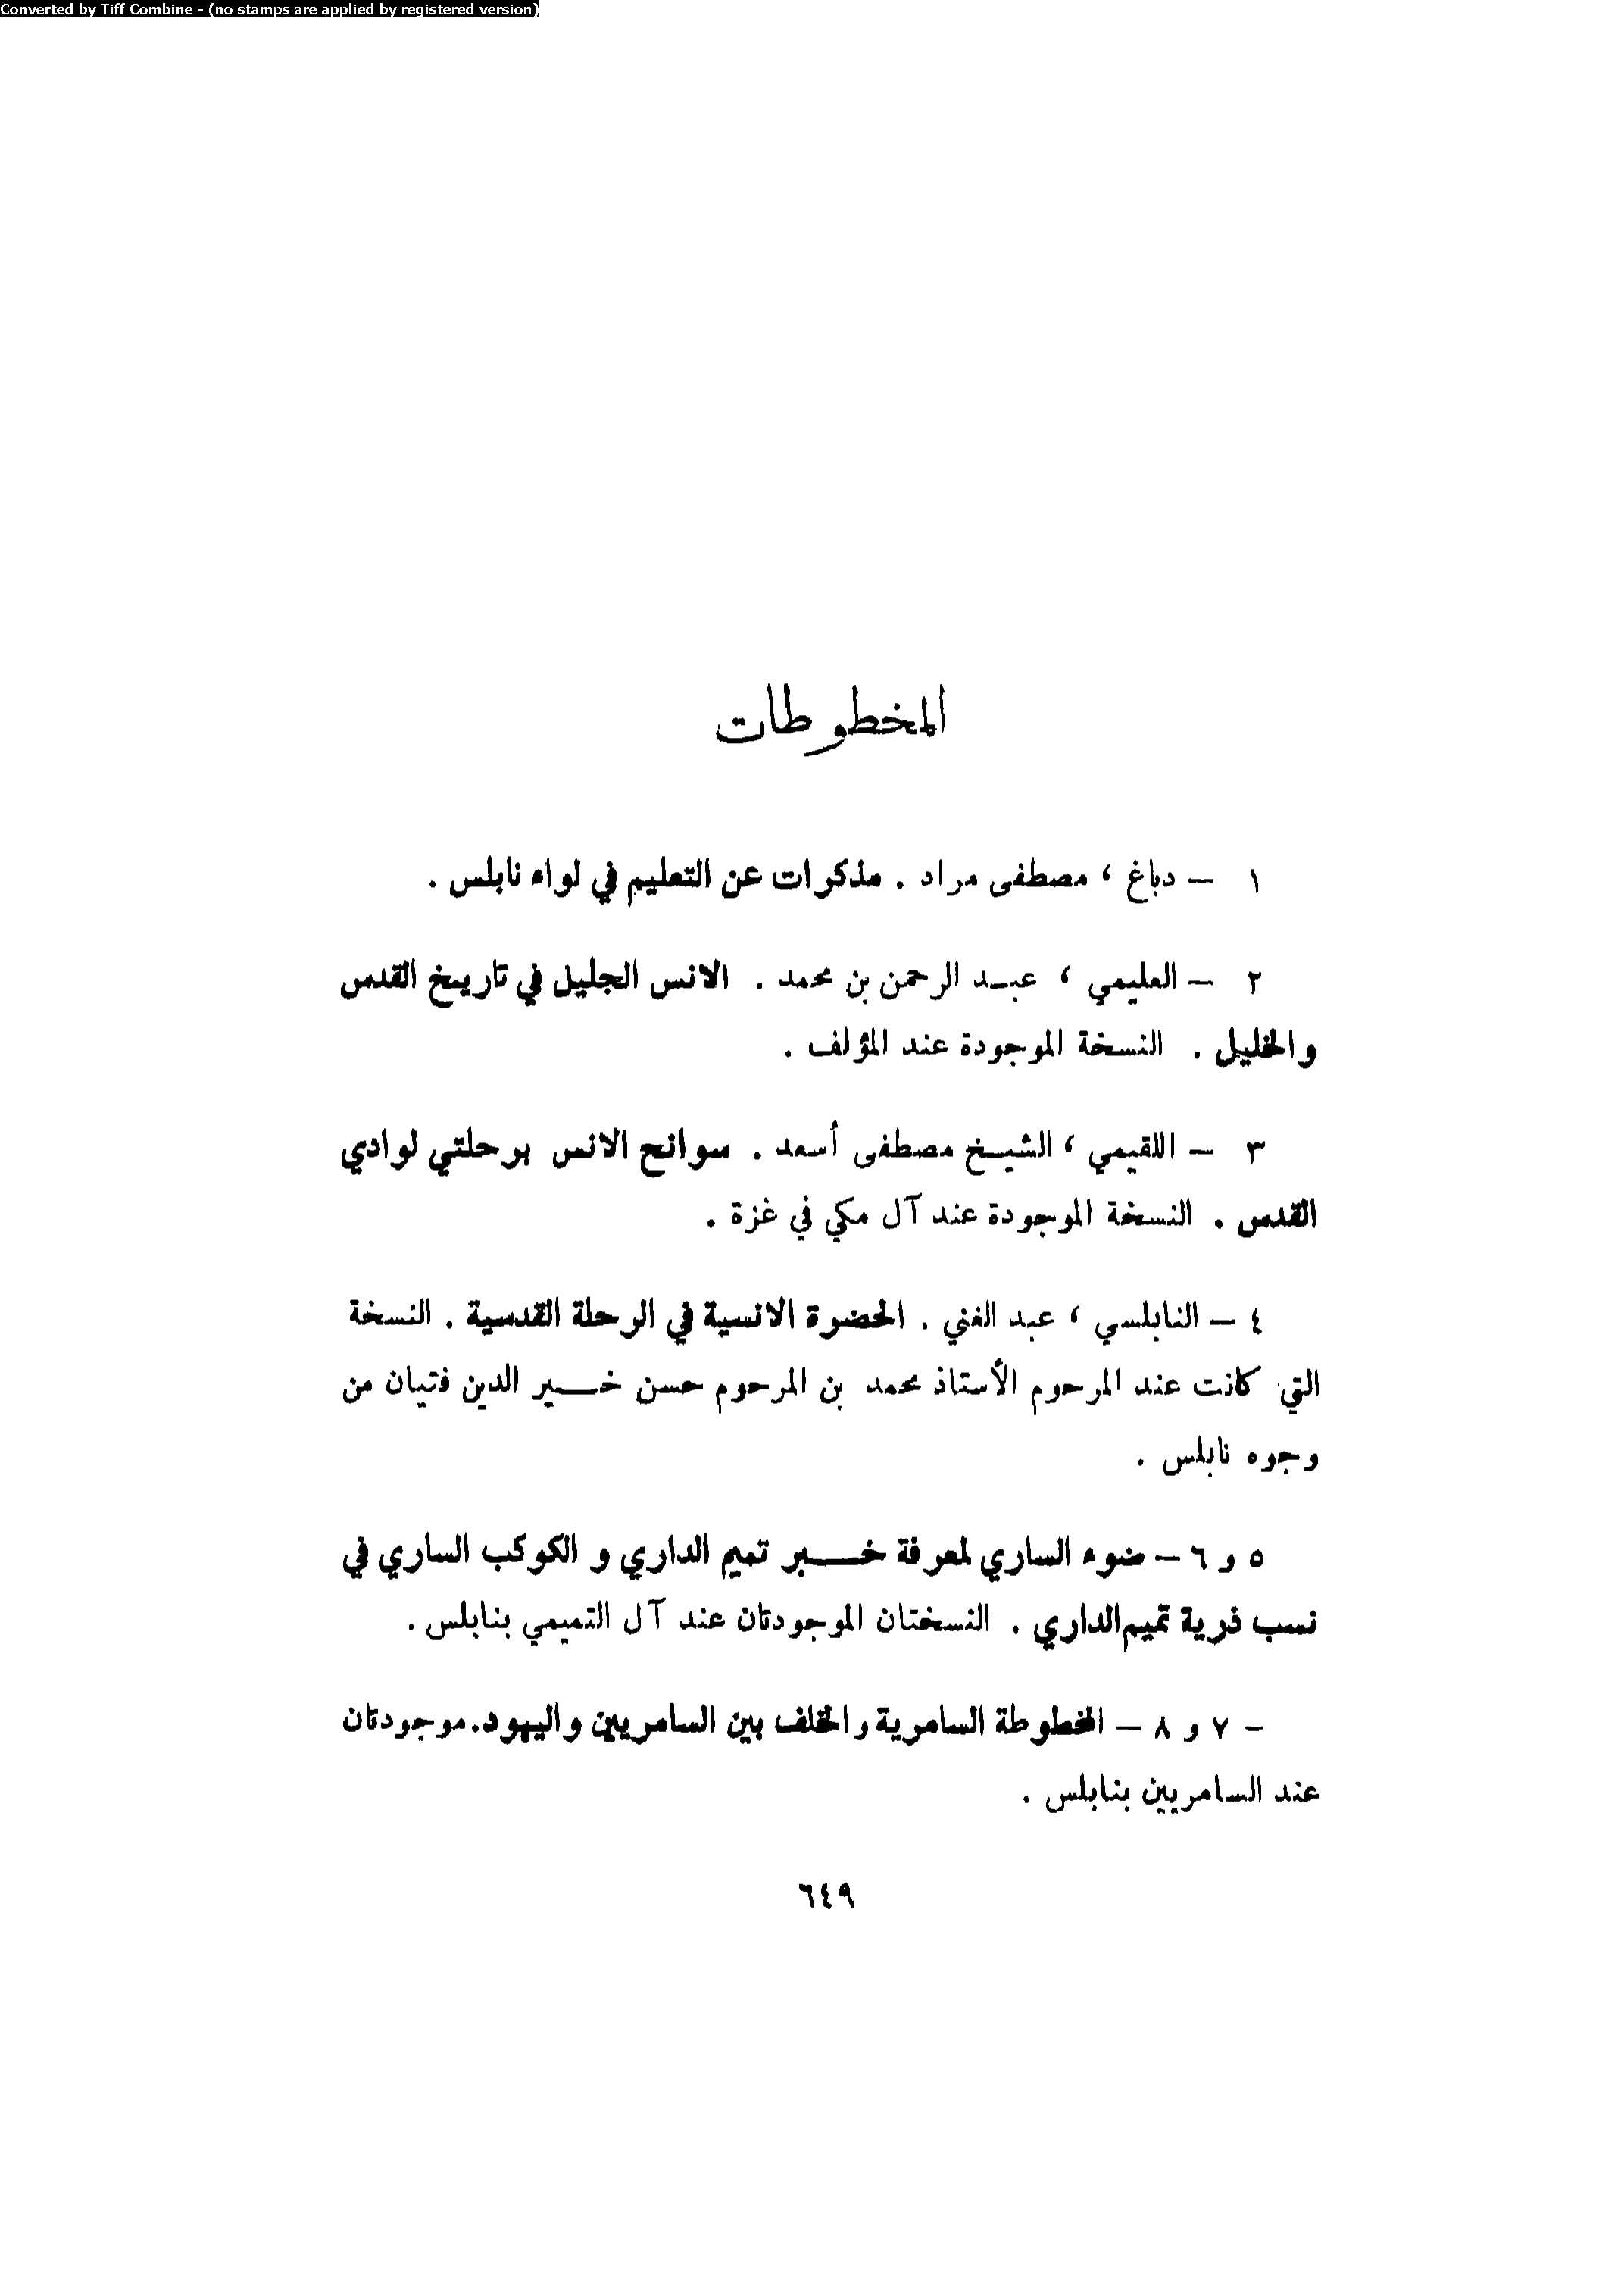 Converted by Tiff Combine - (no stamps are applied by registered version)
المخطوطات
١ – دباغ ، مصطفى مراد . مذكرات عن التعليم في لواء نابلس .
٢ – العليمي ، عبد الرحمن بن محمد . الانس الجليل في تاريخ القدس
والخليل . النسخة الموجودة عند المؤلف .
٣ – اللقيمي ، الشيخ مصطفى أسعد . سوانح الانس برحلتي لوادي
القدس . النسخة الموجودة عند آل مكي في غزة .
٤ – النابلسي ، عبد الغني . الحضرة الانسية في الرحلة القدسية . النسخة
التي كانت عند المرحوم الأستاذ محمد بن المرحوم حسن خير الدين فتيان من
وجوه نابلس .
٥ و ٦ – ضوء الساري لمعرفة خبر تميم الداري و الكوكب الساري في
نسب ذرية تميم الداري . النسختان الموجودتان عند آل التميمي بنابلس .
- ٧ و ٨ – المخطوطة السامرية والخلف بين السامريين واليهود. موجودتان
عند السامريين بنابلس .
٦٤٩